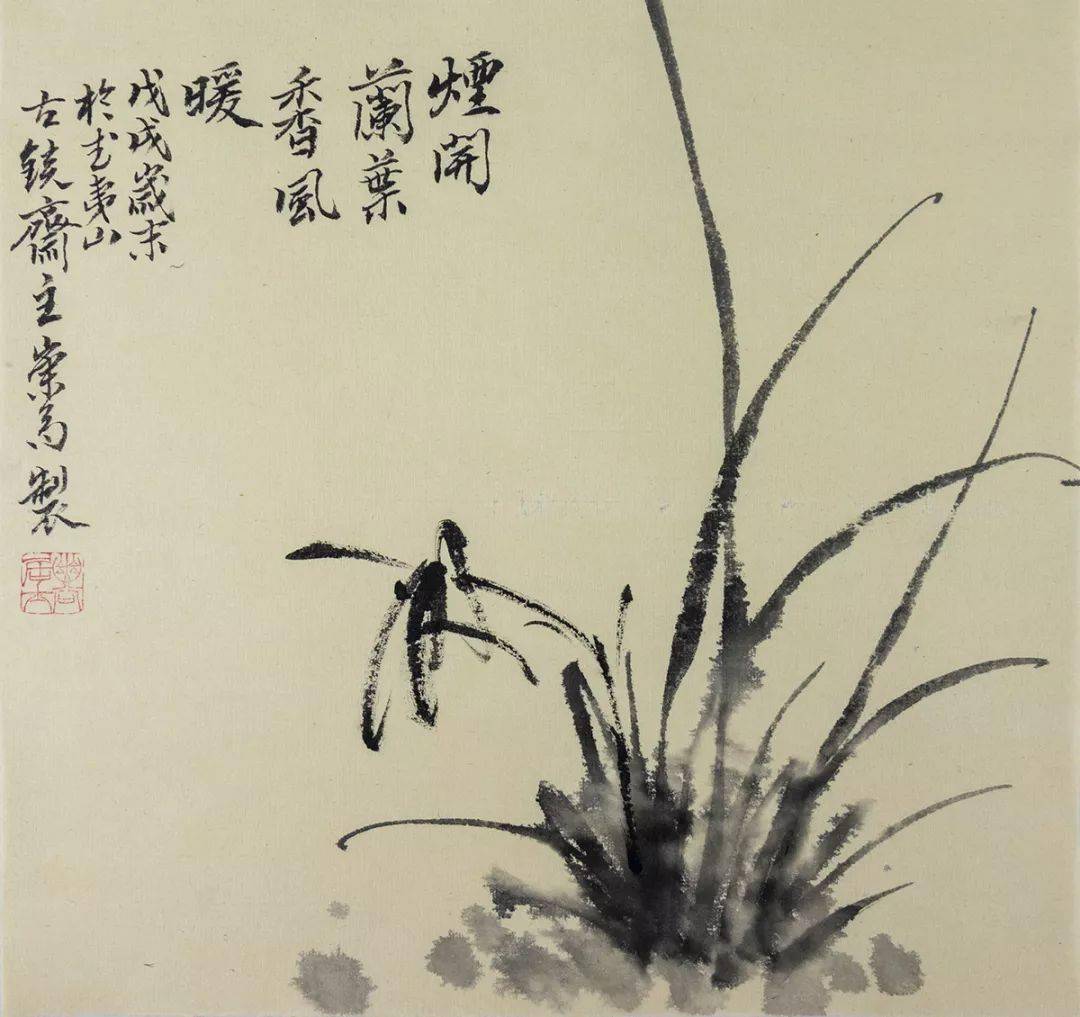 煙開
蘭葉
香風
暖
戊戌歲末
於武夷山
古鏡齋主崇高製